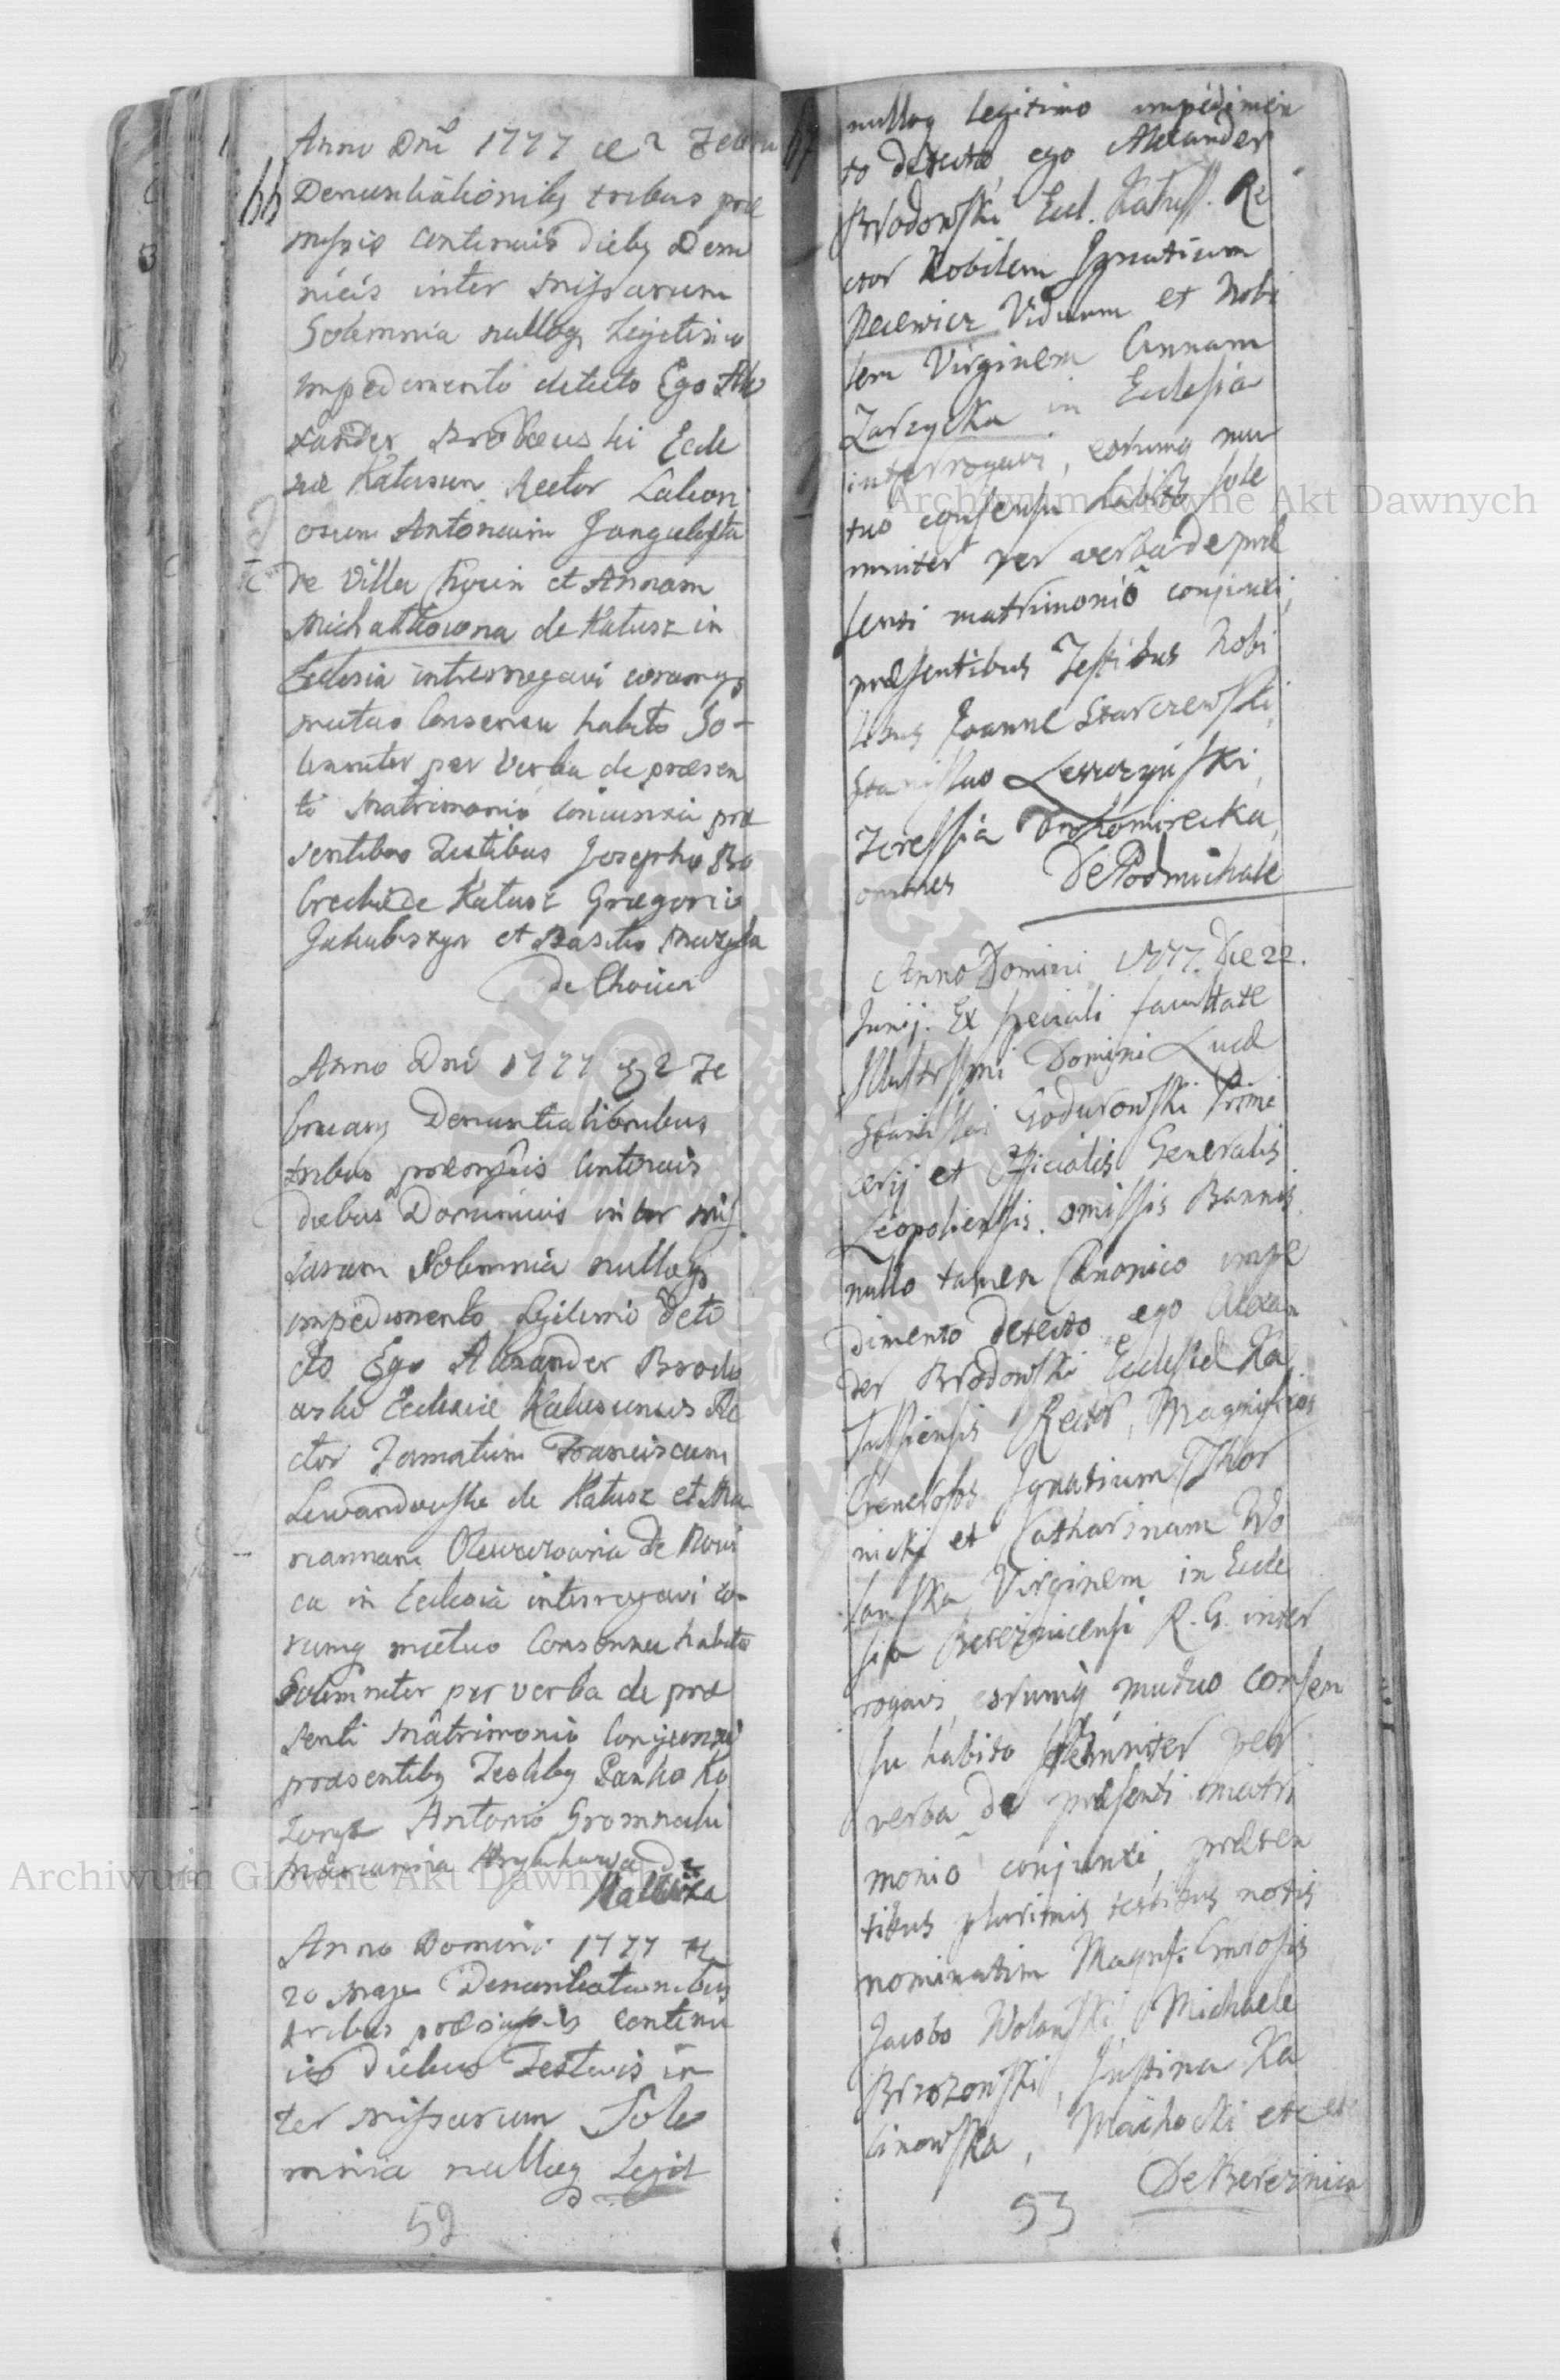 Anno Dni 1777 de 2 Febru
66
Denuntiationibq tribus præ
missis continuis diebq Domi
nicis inter Missarum
Solemnia nulloq Legitimo
impedimento detecto Ego Ale
xander Brodowski Eccle
siæ Kalusien. Rector Labori
osum Antonium
de Villa et Annam
Michałkowna de Kałusz in
Ecclesia interrogavi eorumq
mutuo Consensu habito So-
lemniter per Verba de præsen
ti Matrimonio Conjunxi præ
sentibus Testibus Josepho
de Kałusz Gregorio
et Basilio
de
Anno Dni 1777 2 Fe
bruary Denuntiationibus
tribus præmissis Continuis
diebus Dominicis inter Miss
sarum Solemnia nulloq
impedimento Legitimo dete
cto Ego Alexander Brodo
wski Ecclesiæ Kalusiensis Re
ctor Famatum Franciscum
Lewandowski de Kałusz et Ma
riannam de
ca in Ecclesia interrogavi eo-
rumq mutuo Consensu habito
Solemniter per verba de præ
senti Matrimonio Conjunxi
præsentibq Testibq
Antonio
Marianna de
Anno Domini 1777 de
20 Maji Denuntiationibus
tribus præmissis continu
is diebus Festivis in
ter Missarum Sole
mnia nulloq Legit
52
67
nulloq legitimo impedimen
to detecto, ego Alexander
Brodowski Eccl. Kałuss. Re
ctor Nobilem Ignatium
Viduum et Nobi
lem Virginem Annam
Zarzycka in Ecclesia
interrogavi, eorumq mu
tuo consensu habito sole
mniter per verba de præ
senti matrimonio conjunxi,
præsentibus Testibus Nobi
libus Joanne Starczewski,
Stanislao Leszczynski,
Teressia Drohomirecka,
omnes De Podmichale
Anno Domini 1777. Die 22.
Junij. Ex speciali facultate
Illustrssmi Domini Lucæ
Stanislai Godurowski Prime
cerij et Officialis Generalis
Leopoliensis. omissis Bannis
nullo tamen Canonico impe
dimento detecto ego Alexan
der Brodowski Ecclesiæ Ka
lussiensis Rector, Magnificos
Generosos Ignatium Thor
nicki et Catharinam Wo
lanska Virginem in Eccle
sia Bereznicensi R. G. inter
rogavi, eorumq mutuo consen
su habito solemniter per
verba de præsenti matri
monio conjunxi, præsen
tibus plurimis testibus notis
nominatim Magnf. Gnrosis
Jacobo Wolanski, Michaele
Brzozowski, Justina Ka
linowska, Machocki etc etc
De Bereznica
53
Archiwum Główne Akt Dawnych
Archiwum Główne Akt Dawnych